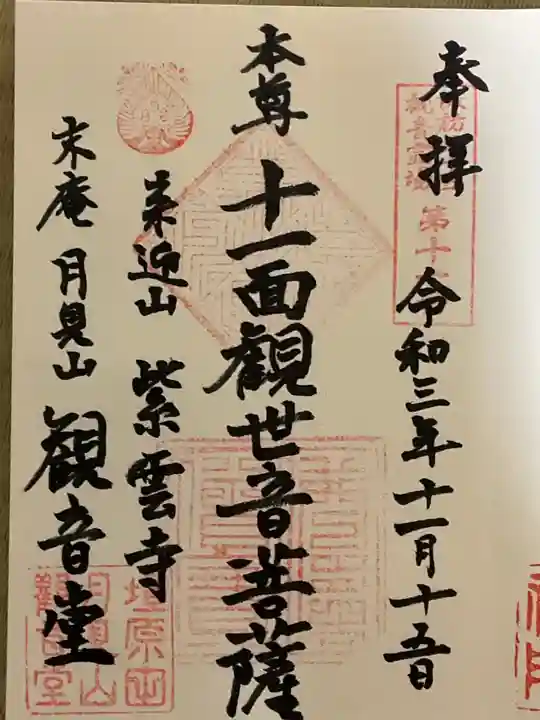 奉拝
令和三年十一月十五日
本尊
十一面観世音菩薩
来迎山 紫雲寺
末庵 月見山 観音堂
第十
塩原山
月見山
観音堂